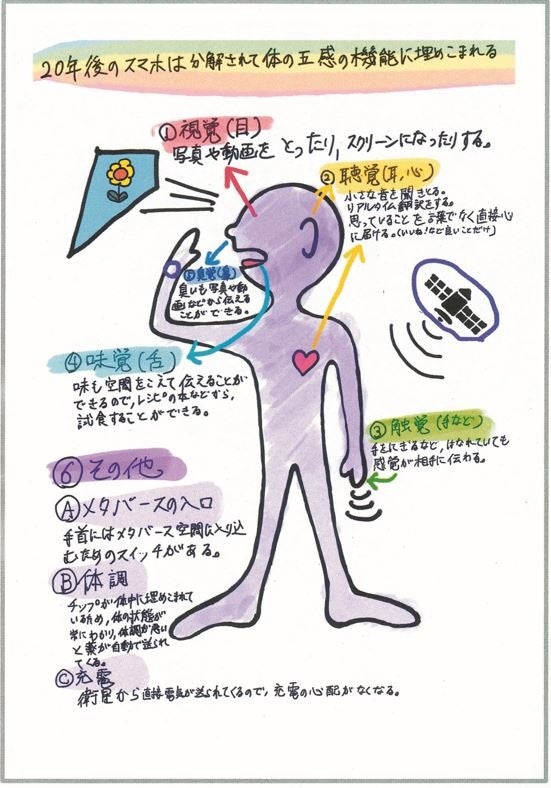 20年後のスマホは分解されて体の五感の機能に埋めこまれる
①視覚(目)
写真や動画をとったり,スクリーンになったりする。
②聴覚(耳,心)
小さな音を聞きとる。
リアルタイム翻訳をする。
思っていることを言葉でなく直接心
に届ける。(いいね!など良いことだけ)
⑤臭覚(鼻)
臭いも写真や動
画などから伝える
ことができる。
④味覚(舌)
味も空間をこえて伝えることが
できるので,レシピの本などから,
試食することができる。
③触覚(手など)
手をにぎるなど,はなれていても
感覚が相手に伝わる。
⑥その他
Ⓐメタバースの入口
手首にはメタバース空間に入り込
むためのスイッチがある。
Ⓑ体調
チップが体中に埋めこまれて
いるため,体の状態が
常にわかり,体調が悪い
と薬が自動で送られ
てくる。
Ⓒ充電
衛星から直接電気が送られてくるので,充電の心配がなくなる。